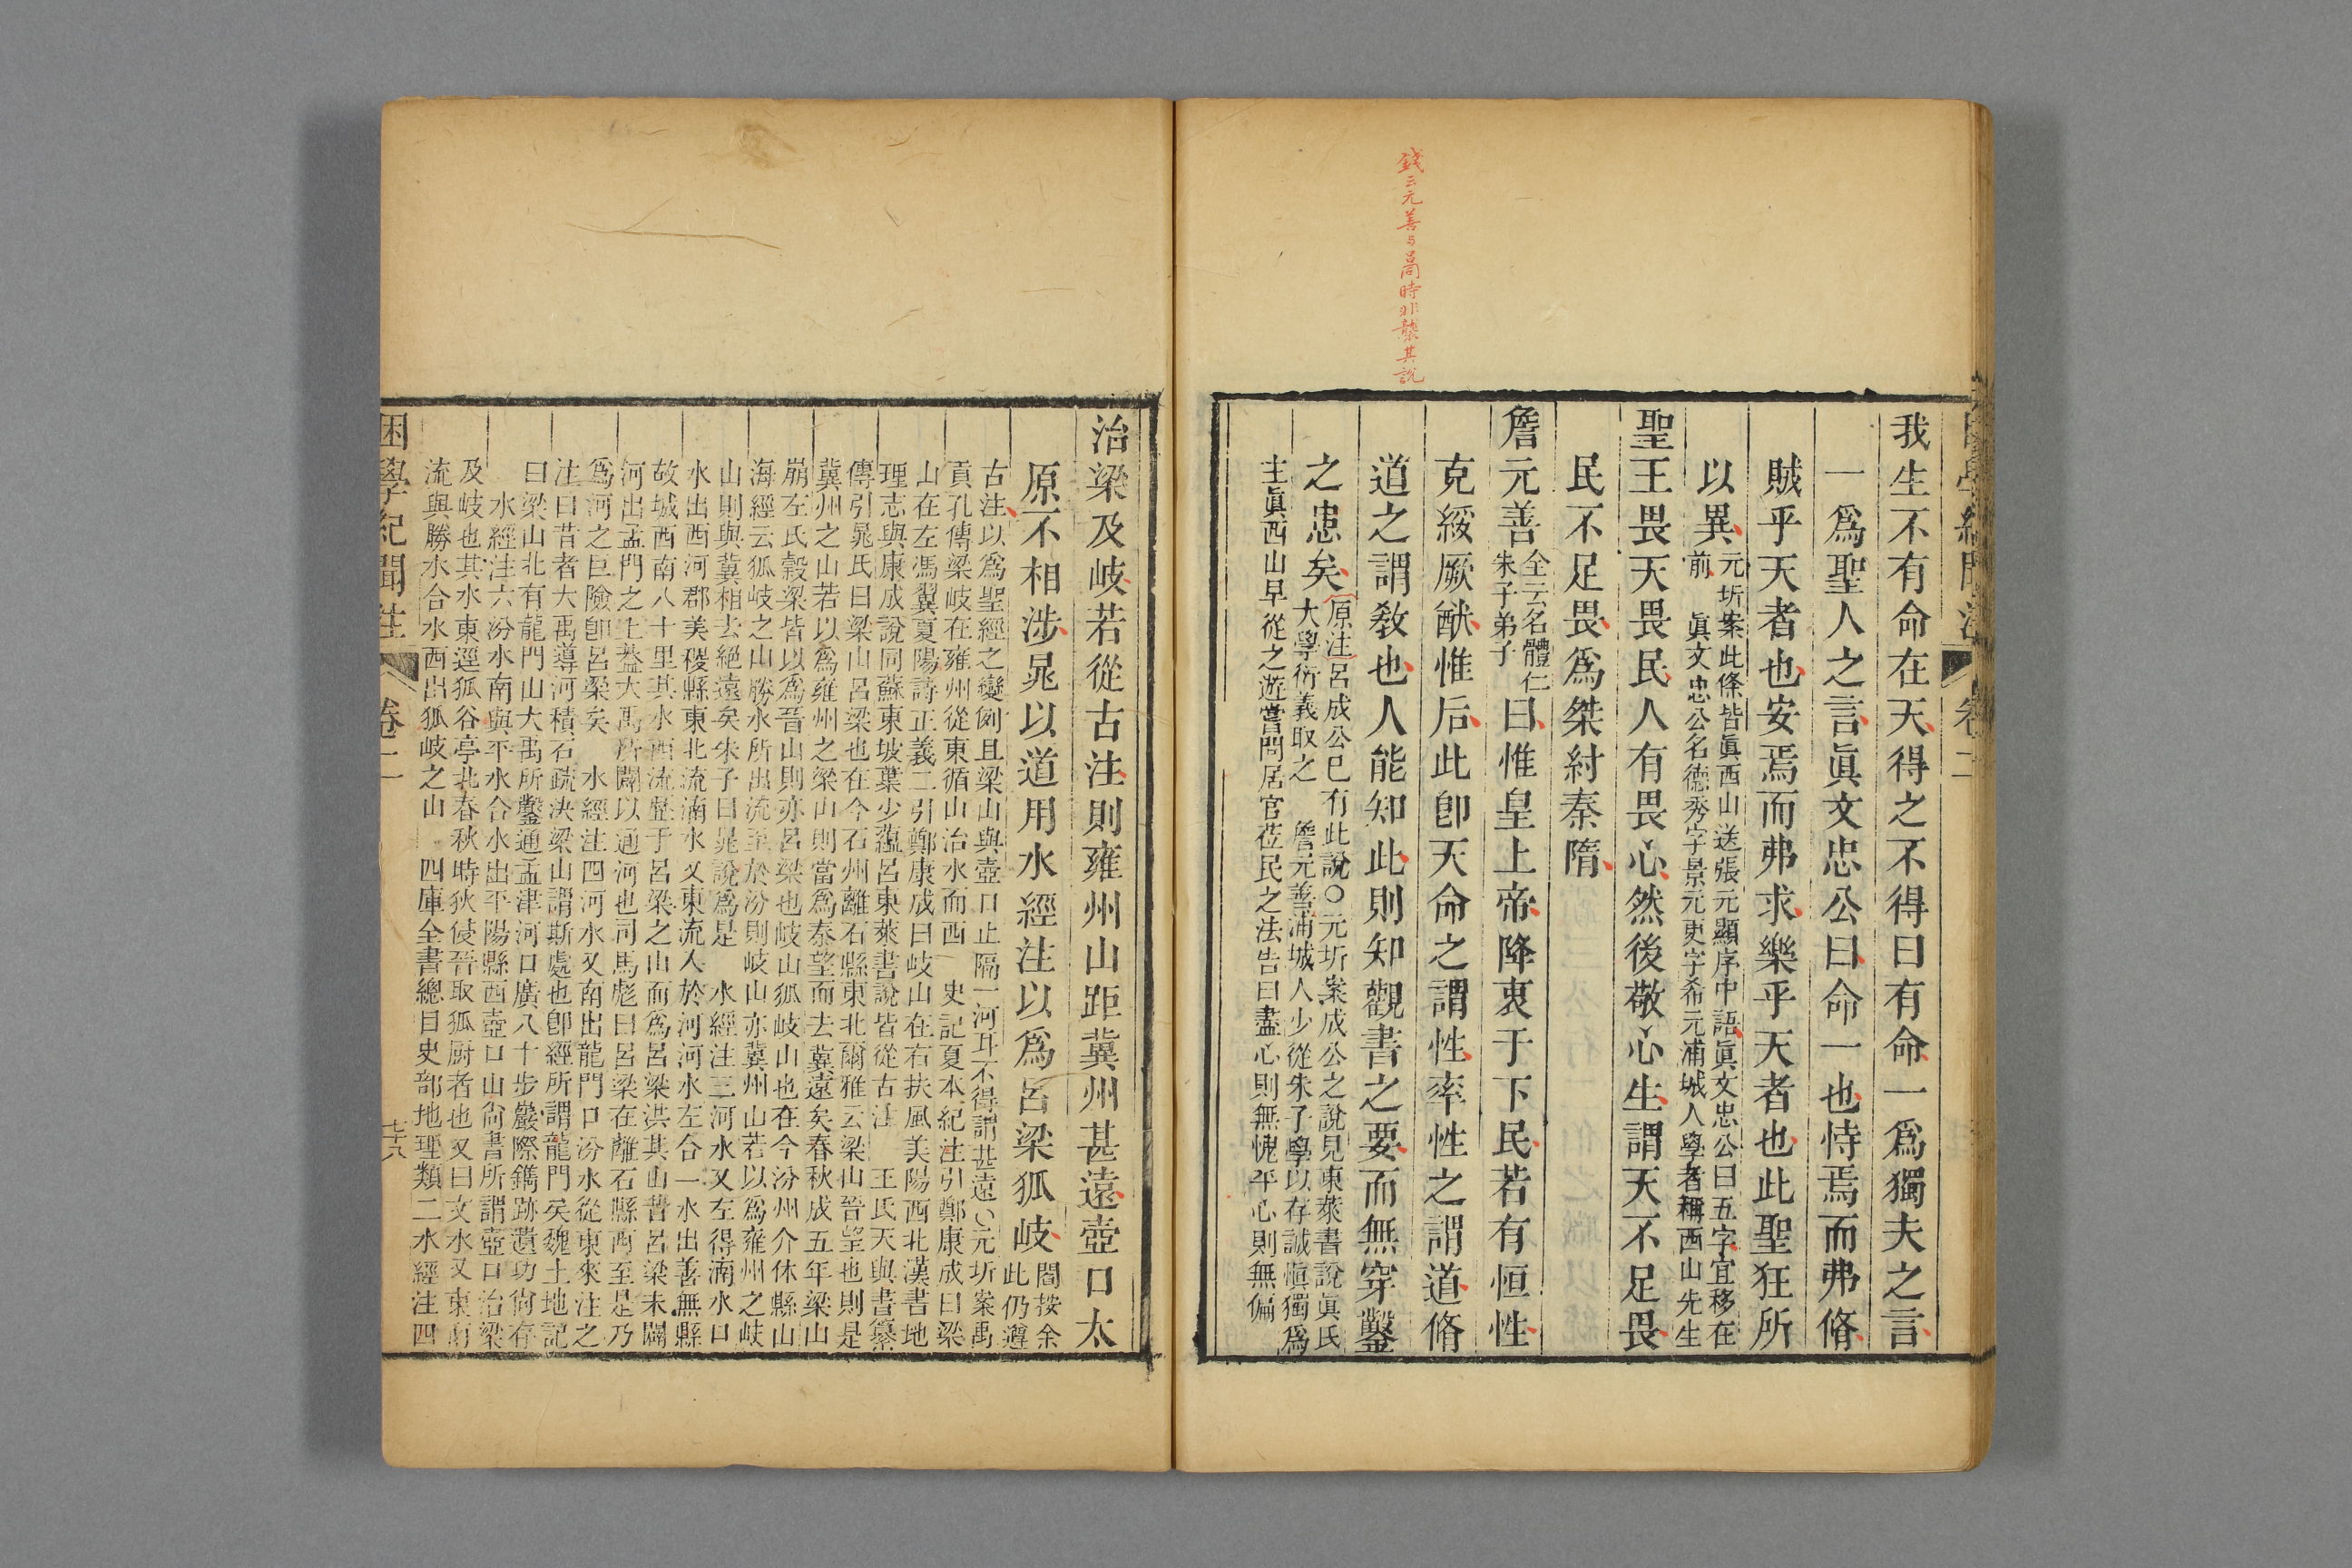 錢云元善与呂同時非襲其說
困學紀聞注 卷二
我生不有命在天得之不得曰有命一爲獨夫之言
一爲聖人之言眞文忠公曰命一也恃焉而弗脩
賊乎天者也安焉而弗求樂乎天者也此聖狂所
以異
元圻案此條皆眞西山送張元顯序中語眞文忠公曰五字宜移在
前 眞文忠公名德秀字景元更字希元浦城人學者稱西山先生
聖王畏天畏民人有畏心然後敬心生謂天不足畏
民不足畏爲桀紂秦隋
詹元善
全云名體仁
朱子弟子
曰惟皇上帝降衷于下民若有恒性
克綏厥猷惟后此卽天命之謂性率性之謂道脩
道之謂敎也人能知此則知觀書之要而無穿鑿
之患矣
原注呂成公已有此說○元圻案成公之說見東萊書說眞氏
大學衍義取之 詹元善浦城人少從朱子學以存誠愼獨爲
主眞西山早從之遊嘗問居官莅民之法吿曰盡心則無愧平心則無偏
治梁及岐若從古注則雍州山距冀州甚遠壺口太
原不相涉晁以道用水經注以爲呂梁狐岐
閻按余
此仍遵
古注以爲聖經之變例且梁山與壺口止隔一河耳不得謂甚遠○元圻案禹
貢孔傳梁岐在雍州從東循山治水而西 史記夏本紀注引鄭康成曰梁
山在左馮翼夏陽詩正義二引鄭康成曰岐山在右扶風美陽西北漢書地
理志與康成說同蘇東坡葉少蘊呂東萊書說皆從古注 王氏天與書纂
傳引晁氏曰梁山呂梁也在今石州離石縣東北爾雅云梁山晉望也則是
冀州之山若以爲雍州之梁山則當爲秦望而去冀遠矣春秋成五年梁山
崩左氏穀梁皆以爲晉山則亦呂梁也岐山狐岐山也在今汾州介休縣山
海經云狐岐之山勝水所出流至於汾則岐山亦冀州山若以爲雍州之岐
山則與冀相去絕遠矣朱子曰晁說爲是 水經注三河水又左得湳水口
水出西河郡美稷縣東北流湳水又東流入於河河水左合一水出善無縣
故城西南八十里其水西流歷于呂梁之山而爲呂梁洪其山昔呂梁未闢
河出孟門之上葢大禹所闢以通河也司馬彪曰呂梁在離石縣西至是乃
爲河之巨險卽呂梁矣 水經注四河水又南出龍門口汾水從東來注之
注曰昔者大禹導河積石疏決梁山謂斯處也卽經所謂龍門矣魏土地記
曰梁山北有龍門山大禹所鑿通孟津河口廣八十步巖際鐫跡遺功尙存
水經注六汾水南與平水合水出平陽縣西壺口山尙書所謂壺口治梁
及岐也其水東逕狐谷亭北春秋時狄侵晉取狐廚者也又曰文水又東南
流與勝水合水西出狐岐之山 四庫全書總目史部地理類二水經注四
困學紀聞注 卷二